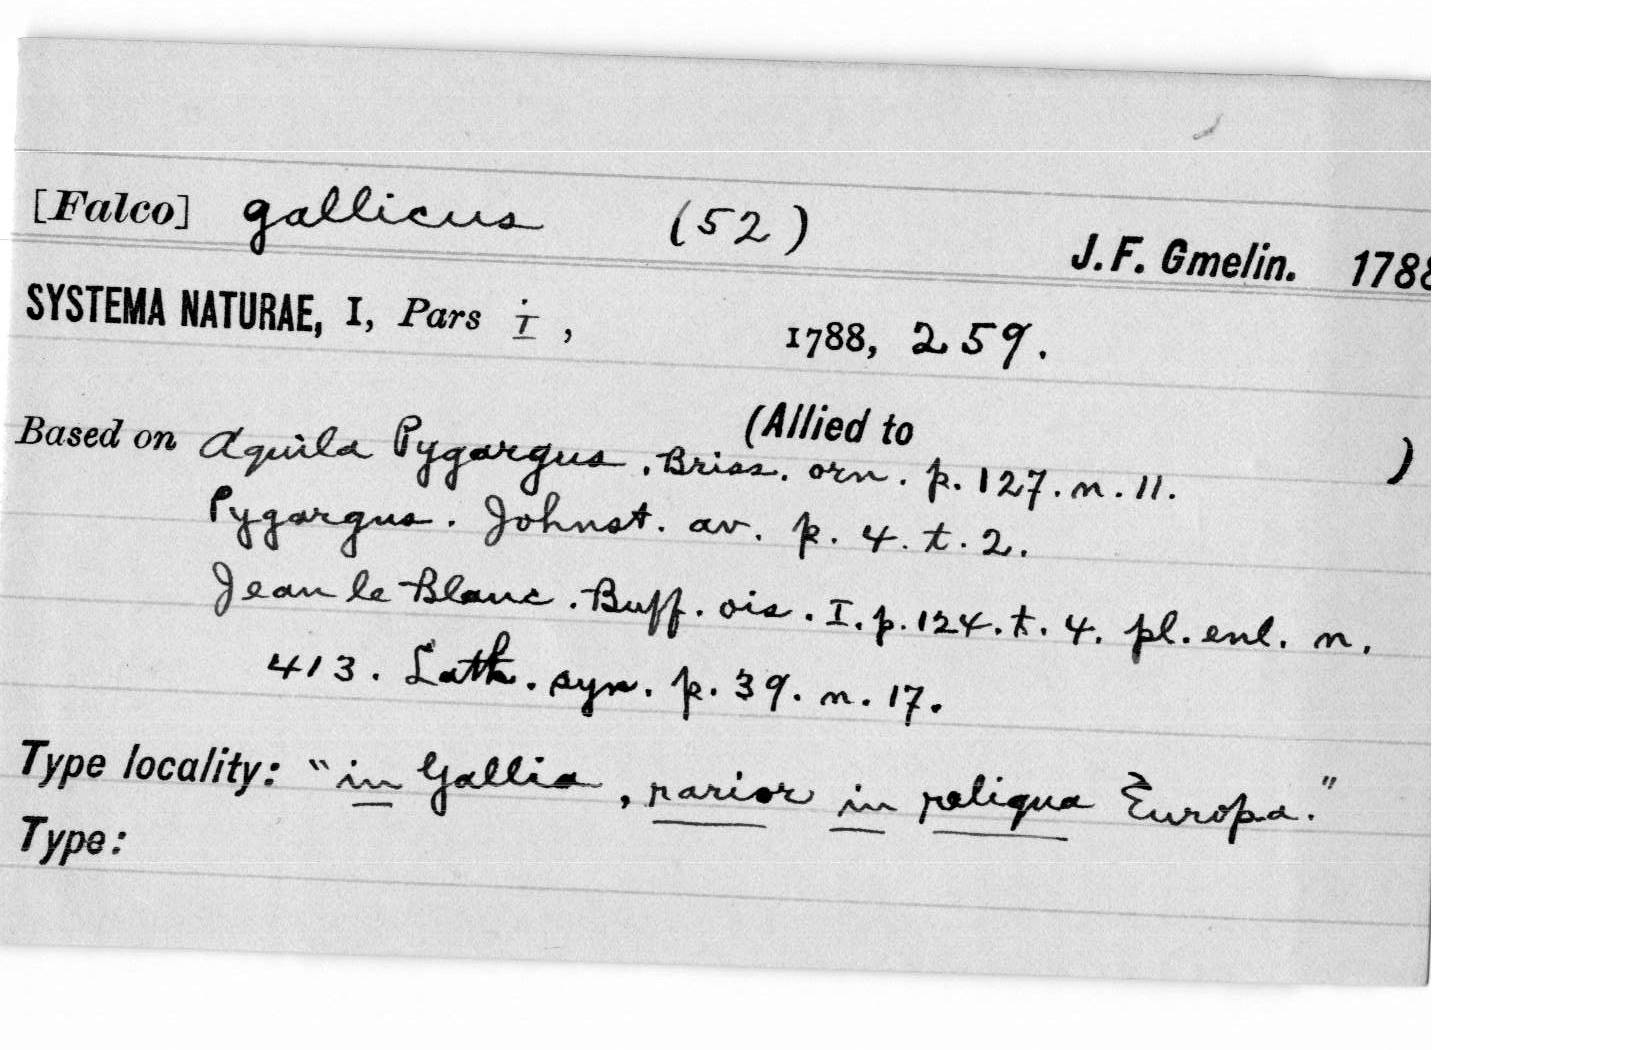 [Falco] gallicus (52)
J. F. Gmelin. 1788
SYSTEMA NATURAE, I, Pars i, 1788, 259.
(Allied to )
Based on Aquila Pygargus. Briss. orn. p. 127. n. 11.
Pygargus. Johnst. av. p. 4. t. 2.
Jean le Blanc. Buff. ois. I. p. 124. t. 4. pl. enl. n.
413. Lath. syn. p. 39. n. 17.
Type locality: "in Gallia, rarior in reliqua Europa."
Type: